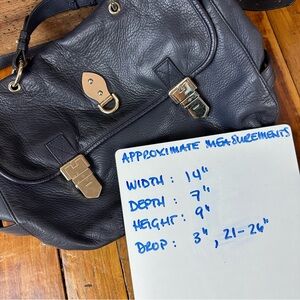 APPROXIMATE MEASUREMENTS
WIDTH : 14"
DEPTH : 7"
HEIGHT : 9"
DROP : 3", 21-26"